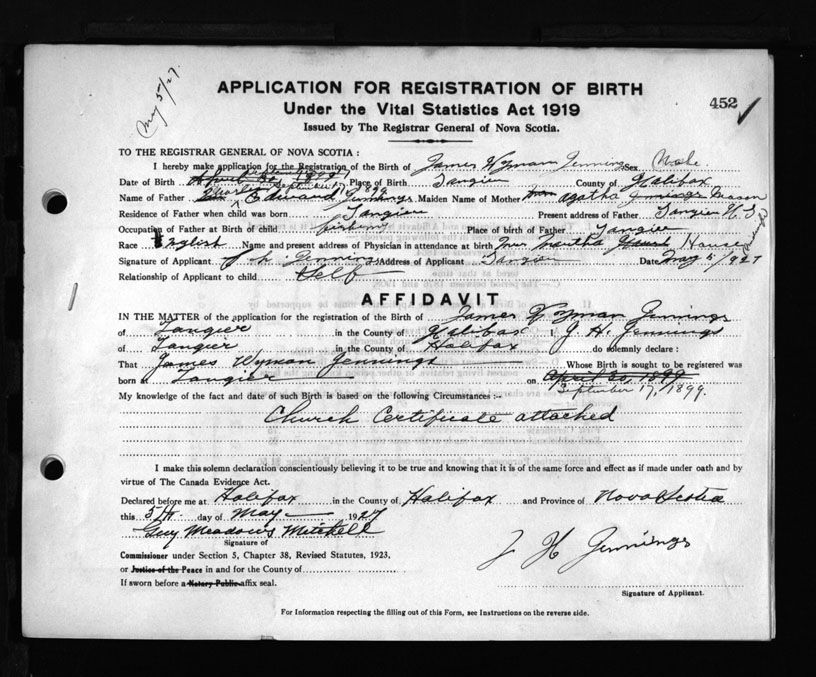 May 5/27.
APPLICATION FOR REGISTRATION OF BIRTH
Under the Vital Statistics Act 1919
452
Issued by The Registrar General of Nova Scotia.
TO THE REGISTRAR GENERAL OF NOVA SCOTIA :
I hereby make application for the Registration of the Birth of James Wyman Jennings Sex Male
Date of Birth April 30, 1899 September 17, 1899 Place of Birth Tangier County of Halifax
Name of Father Charles Edward Jennings Maiden Name of Mother Agatha Jennings Mason
Residence of Father when child was born Tangier Present address of Father Tangier N.S.
Occupation of Father at Birth of child fisherm Place of birth of Father Tangier
Race English Name and present address of Physician in attendance at birth Mrs Martha
Signature of Applicant J H Jennings Address of Applicant Tangier Date May 5/1927
Relationship of Applicant to child Self
AFFIDAVIT
IN THE MATTER of the application for the registration of the Birth of James Wyman Jennings
of Tangier in the County of Halifax I, J. H. Jennings
of Tangier in the County of Halifax do solemnly declare :
That James Wyman Jennings Whose Birth is sought to be registered was
born a Tangier on April 30, 1899
September 17, 1899.
My knowledge of the fact and date of such Birth is based on the following Circumstances :-
Church Certificate attached
I make this solemn declaration conscientiously believing it to be true and knowing that it is of the same force and effect as if made under oath and by
virtue of The Canada Evidence Act.
Declared before me at Halifax in the County of Halifax and Province of Nova Scotia
this 5th day of May 1927
Guy Meadows Mitchell
Signature of
Commissioner under Section 5, Chapter 38, Revised Statutes, 1923,
J H Jennings
or Justice of the Peace in and for the County of
If sworn before a Notary Public affix seal.
Signature of Applicant.
For Information respecting the filling out of this Form, see Instructions on the reverse side.